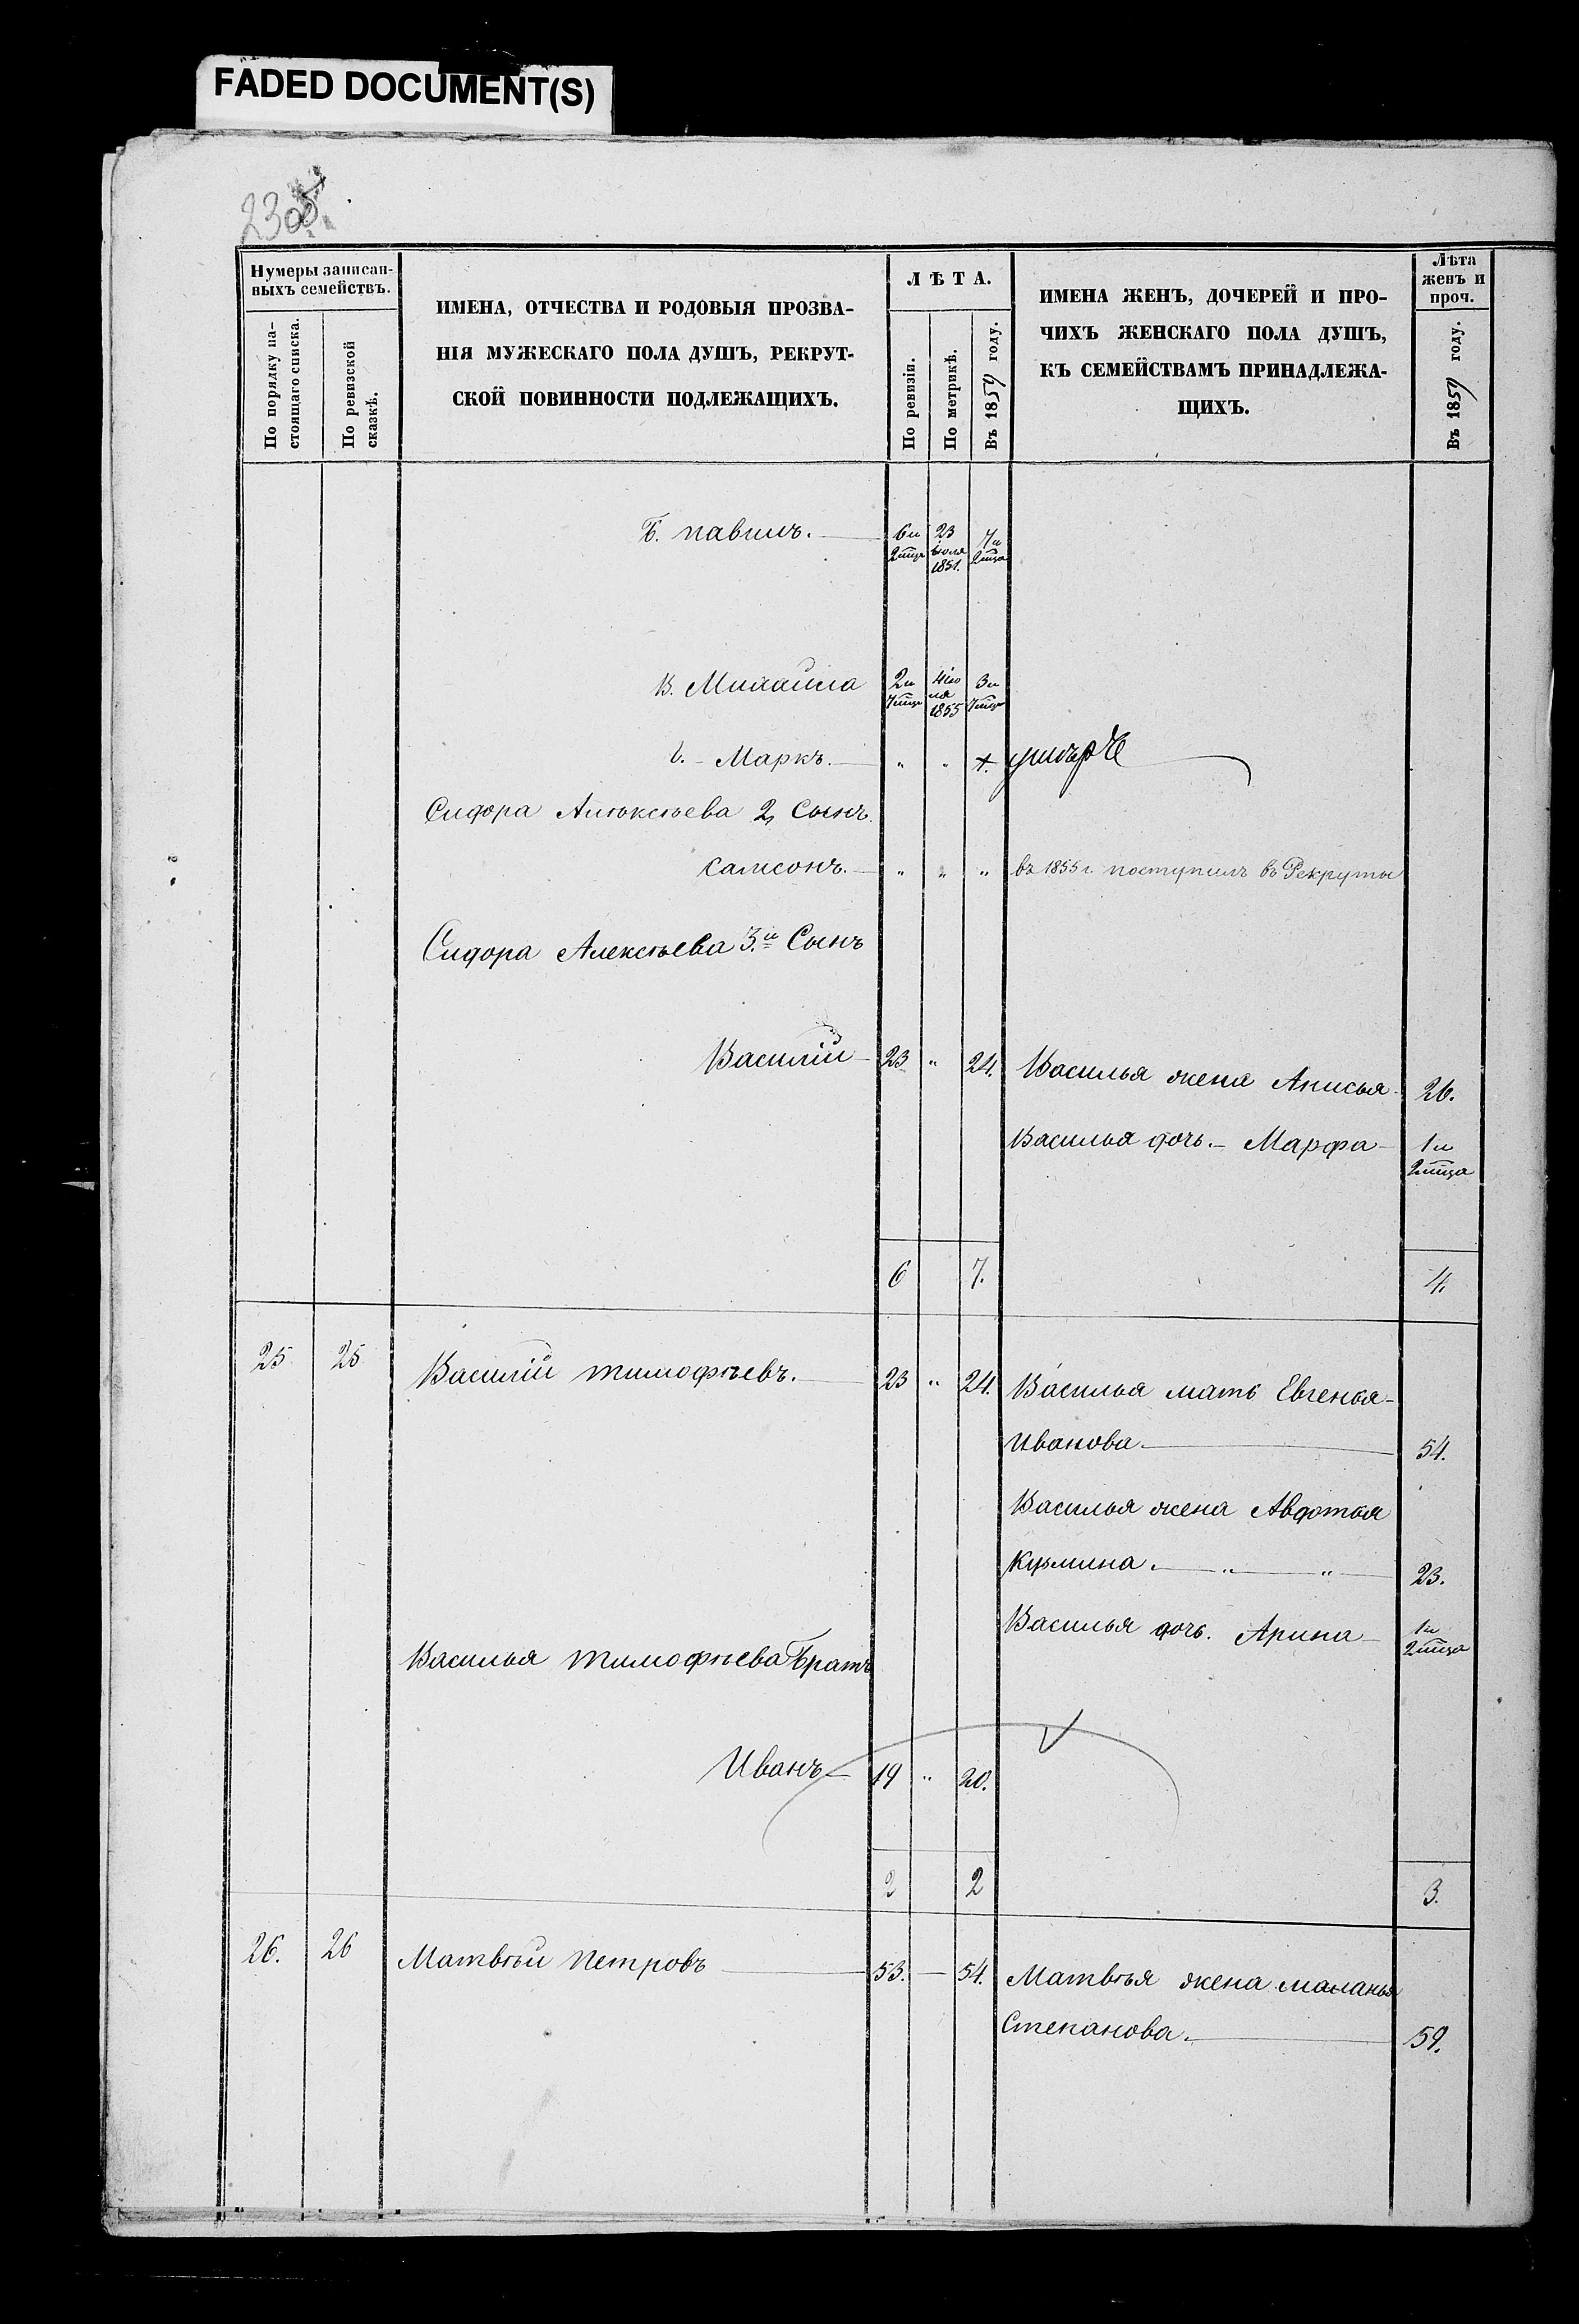 FADED DOCUMENT(S)
Нумеры записан-
ныхъ семействъ.
По порядку на-
стоящаго списка.
По ревизской
сказкѣ.
ИМЕНА, ОТЧЕСТВА И РОДОВЫЯ ПРОЗВА-
НІЯ МУЖЕСКАГО ПОЛА ДУШЪ, РЕКРУТ-
СКОЙ ПОВИННОСТИ ПОДЛЕЖАЩИХЪ.
ЛѢТА.
По ревизіи.
По метрикѣ.
Въ 1859 году.
ИМЕНА ЖЕНЪ, ДОЧЕРЕЙ И ПРО-
ЧИХЪ ЖЕНСКАГО ПОЛА ДУШЪ,
КЪ СЕМЕЙСТВАМЪ ПРИНАДЛЕЖА-
ЩИХЪ.
Лѣта
женъ и
проч.
Въ 1859 году.
Б. павилъ. 6 и 2 мца 23 іюля 1851. 7 и 2 мца
В. Михаила 2 и 7 мца 4 іюля 1855 3 и 7 мца
Г. Маркъ. " " +. умеръ
Сидора Алексѣева 2й Сынъ
самсонъ. " " " въ 1855 г. поступилъ въ Рекруты
Сидора Алексѣева 3.й Сынъ
Василій 23 " 24. Василья жена Анисья 26.
Василья дочь. Марфа 1 и 2 мца
6 7. 4.
25 25 Василій тимофѣевъ. 23 " 24. Василья мать Евгенья
Иванова 54.
Василья жена Авдотья
Кузмина. " " 23.
Василья дочь. Арина 1 и 2 мца
Василья тимофѣева Братъ
Иванъ 19 " 20.
2 2 3.
26. 26 Матвѣй петровъ 53. 54. Матвѣя жена маланья
Степанова. 59.